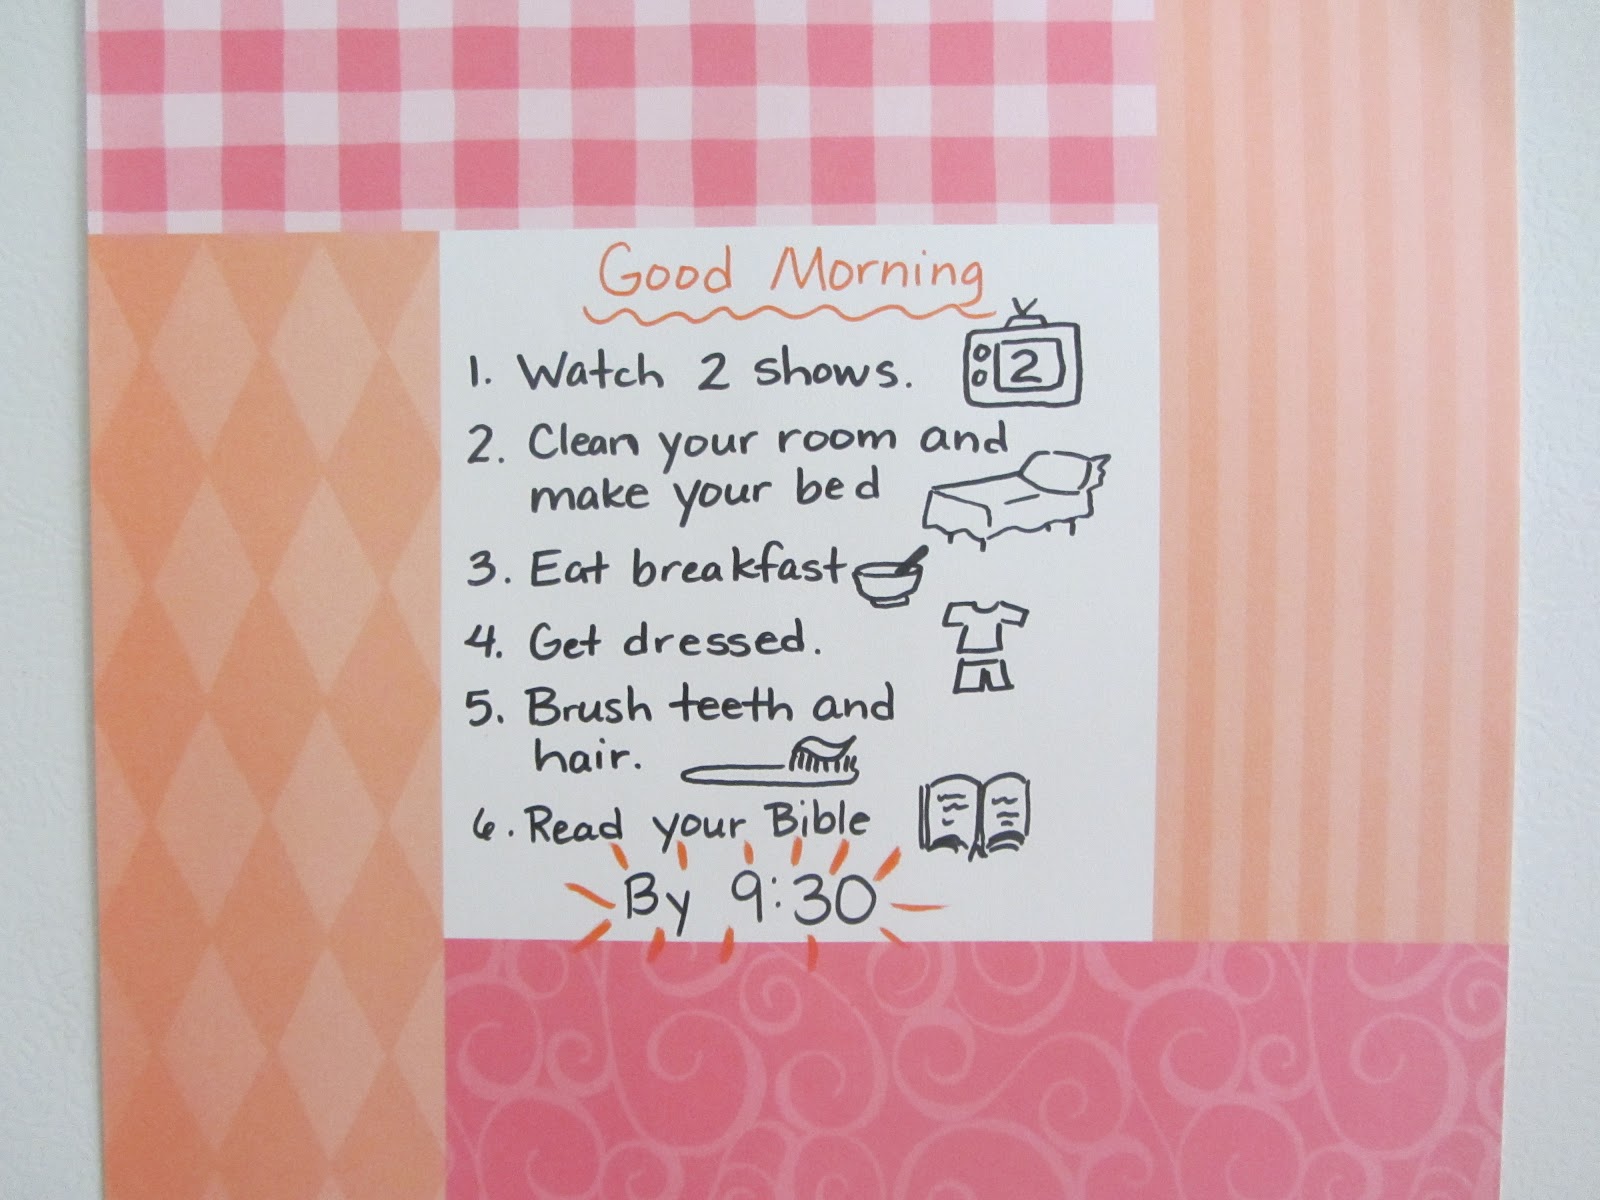 Good Morning
1. Watch 2 shows.
2
2. Clean your room and
make your bed
3. Eat breakfast
4. Get dressed.
5. Brush teeth and
hair.
6. Read your Bible
By 9:30